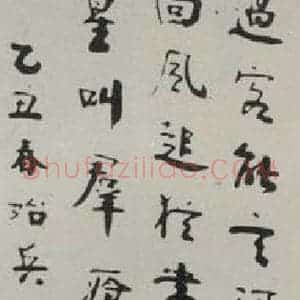 過客能言
回風追
星叫羣
乙丑春治兵
shufaziliao.com